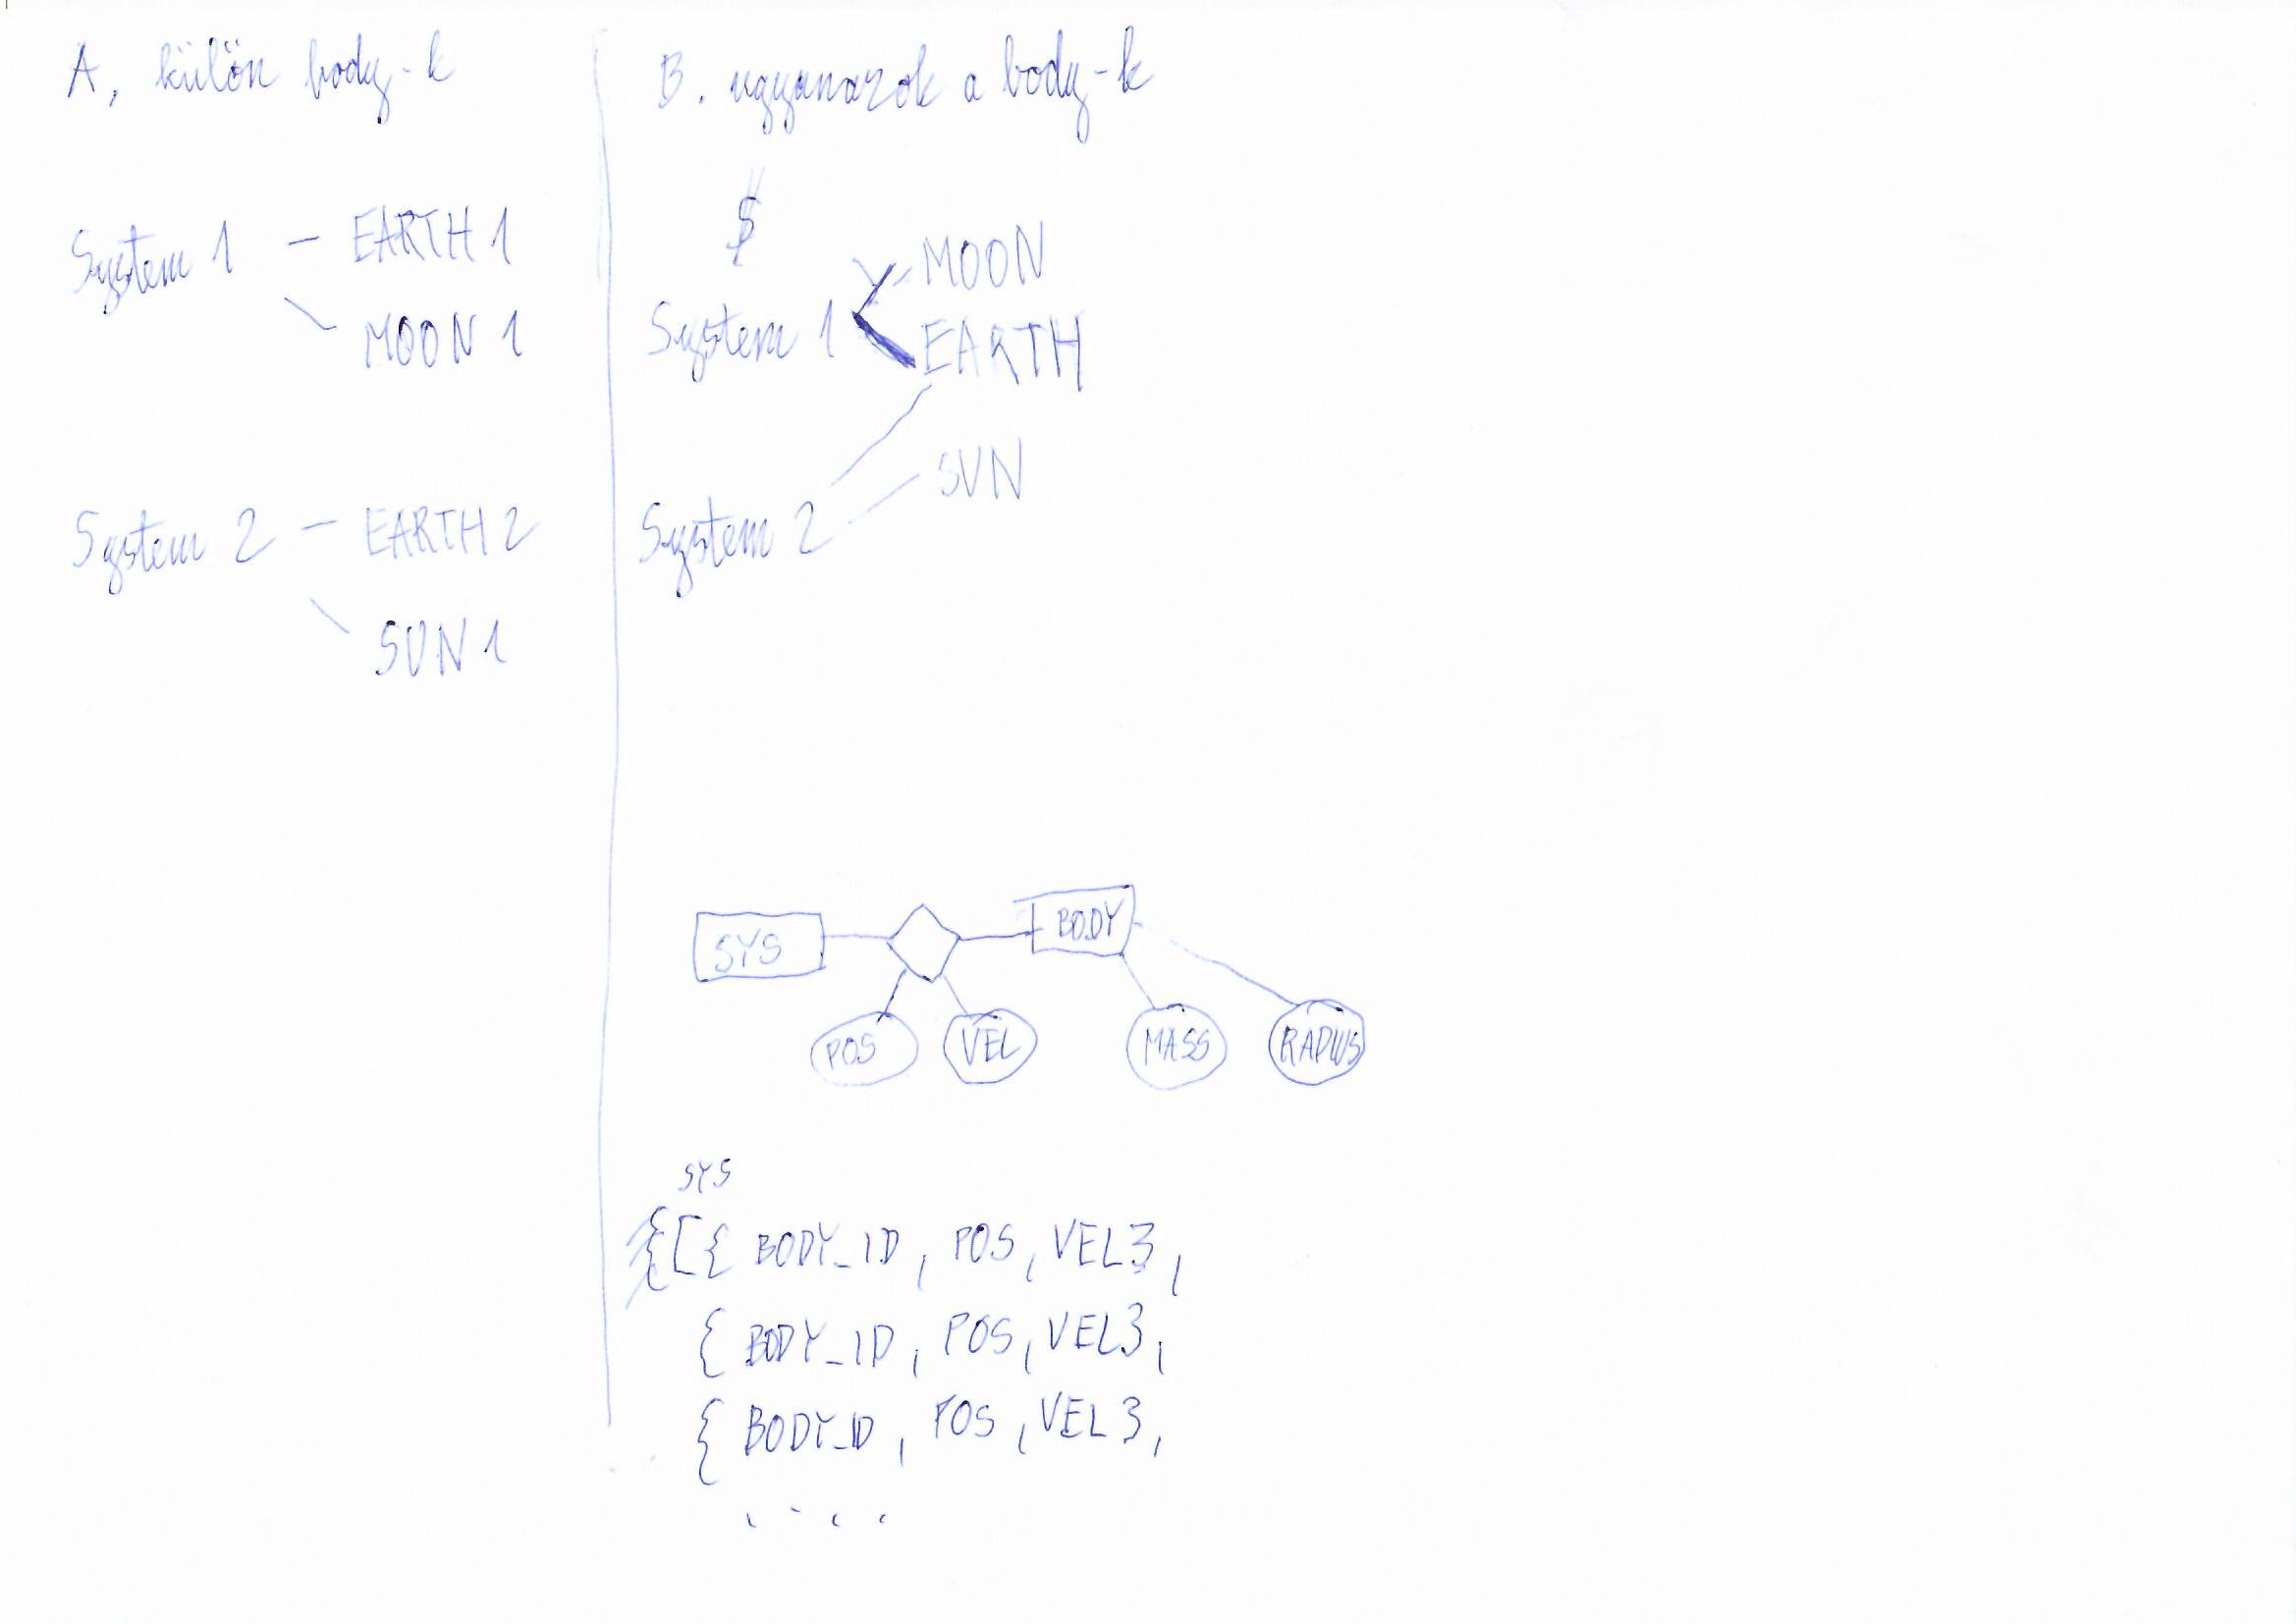 A, külön body-k
System 1 - EARTH 1
MOON 1
System 2 - EARTH 2
SUN 1
B. ugyanazok a body-k
MOON
System 1 EARTH
SUN
System 2
SYS BODY
POS VEL MASS RADIUS
SYS
{[{ BODY_ID, POS, VEL},
{ BODY_ID, POS, VEL},
{ BODY_ID, POS, VEL},
....